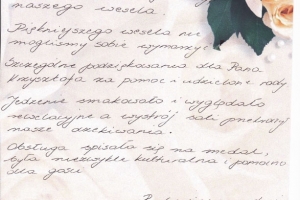 naszego wesela.
Piękniejszego wesela nie
mogliśmy sobie wymarzyć
Szczególne podziękowania dla Pana
Krzysztofa za pomoc i udzielone rady
Jedzenie smakowało i wyglądało
rewelacyjne a wystrój sali przekroczył
nasze oczekiwania.
Obsługa spisała się na medal,
była niezwykle kulturalna i pomocna
dla gości